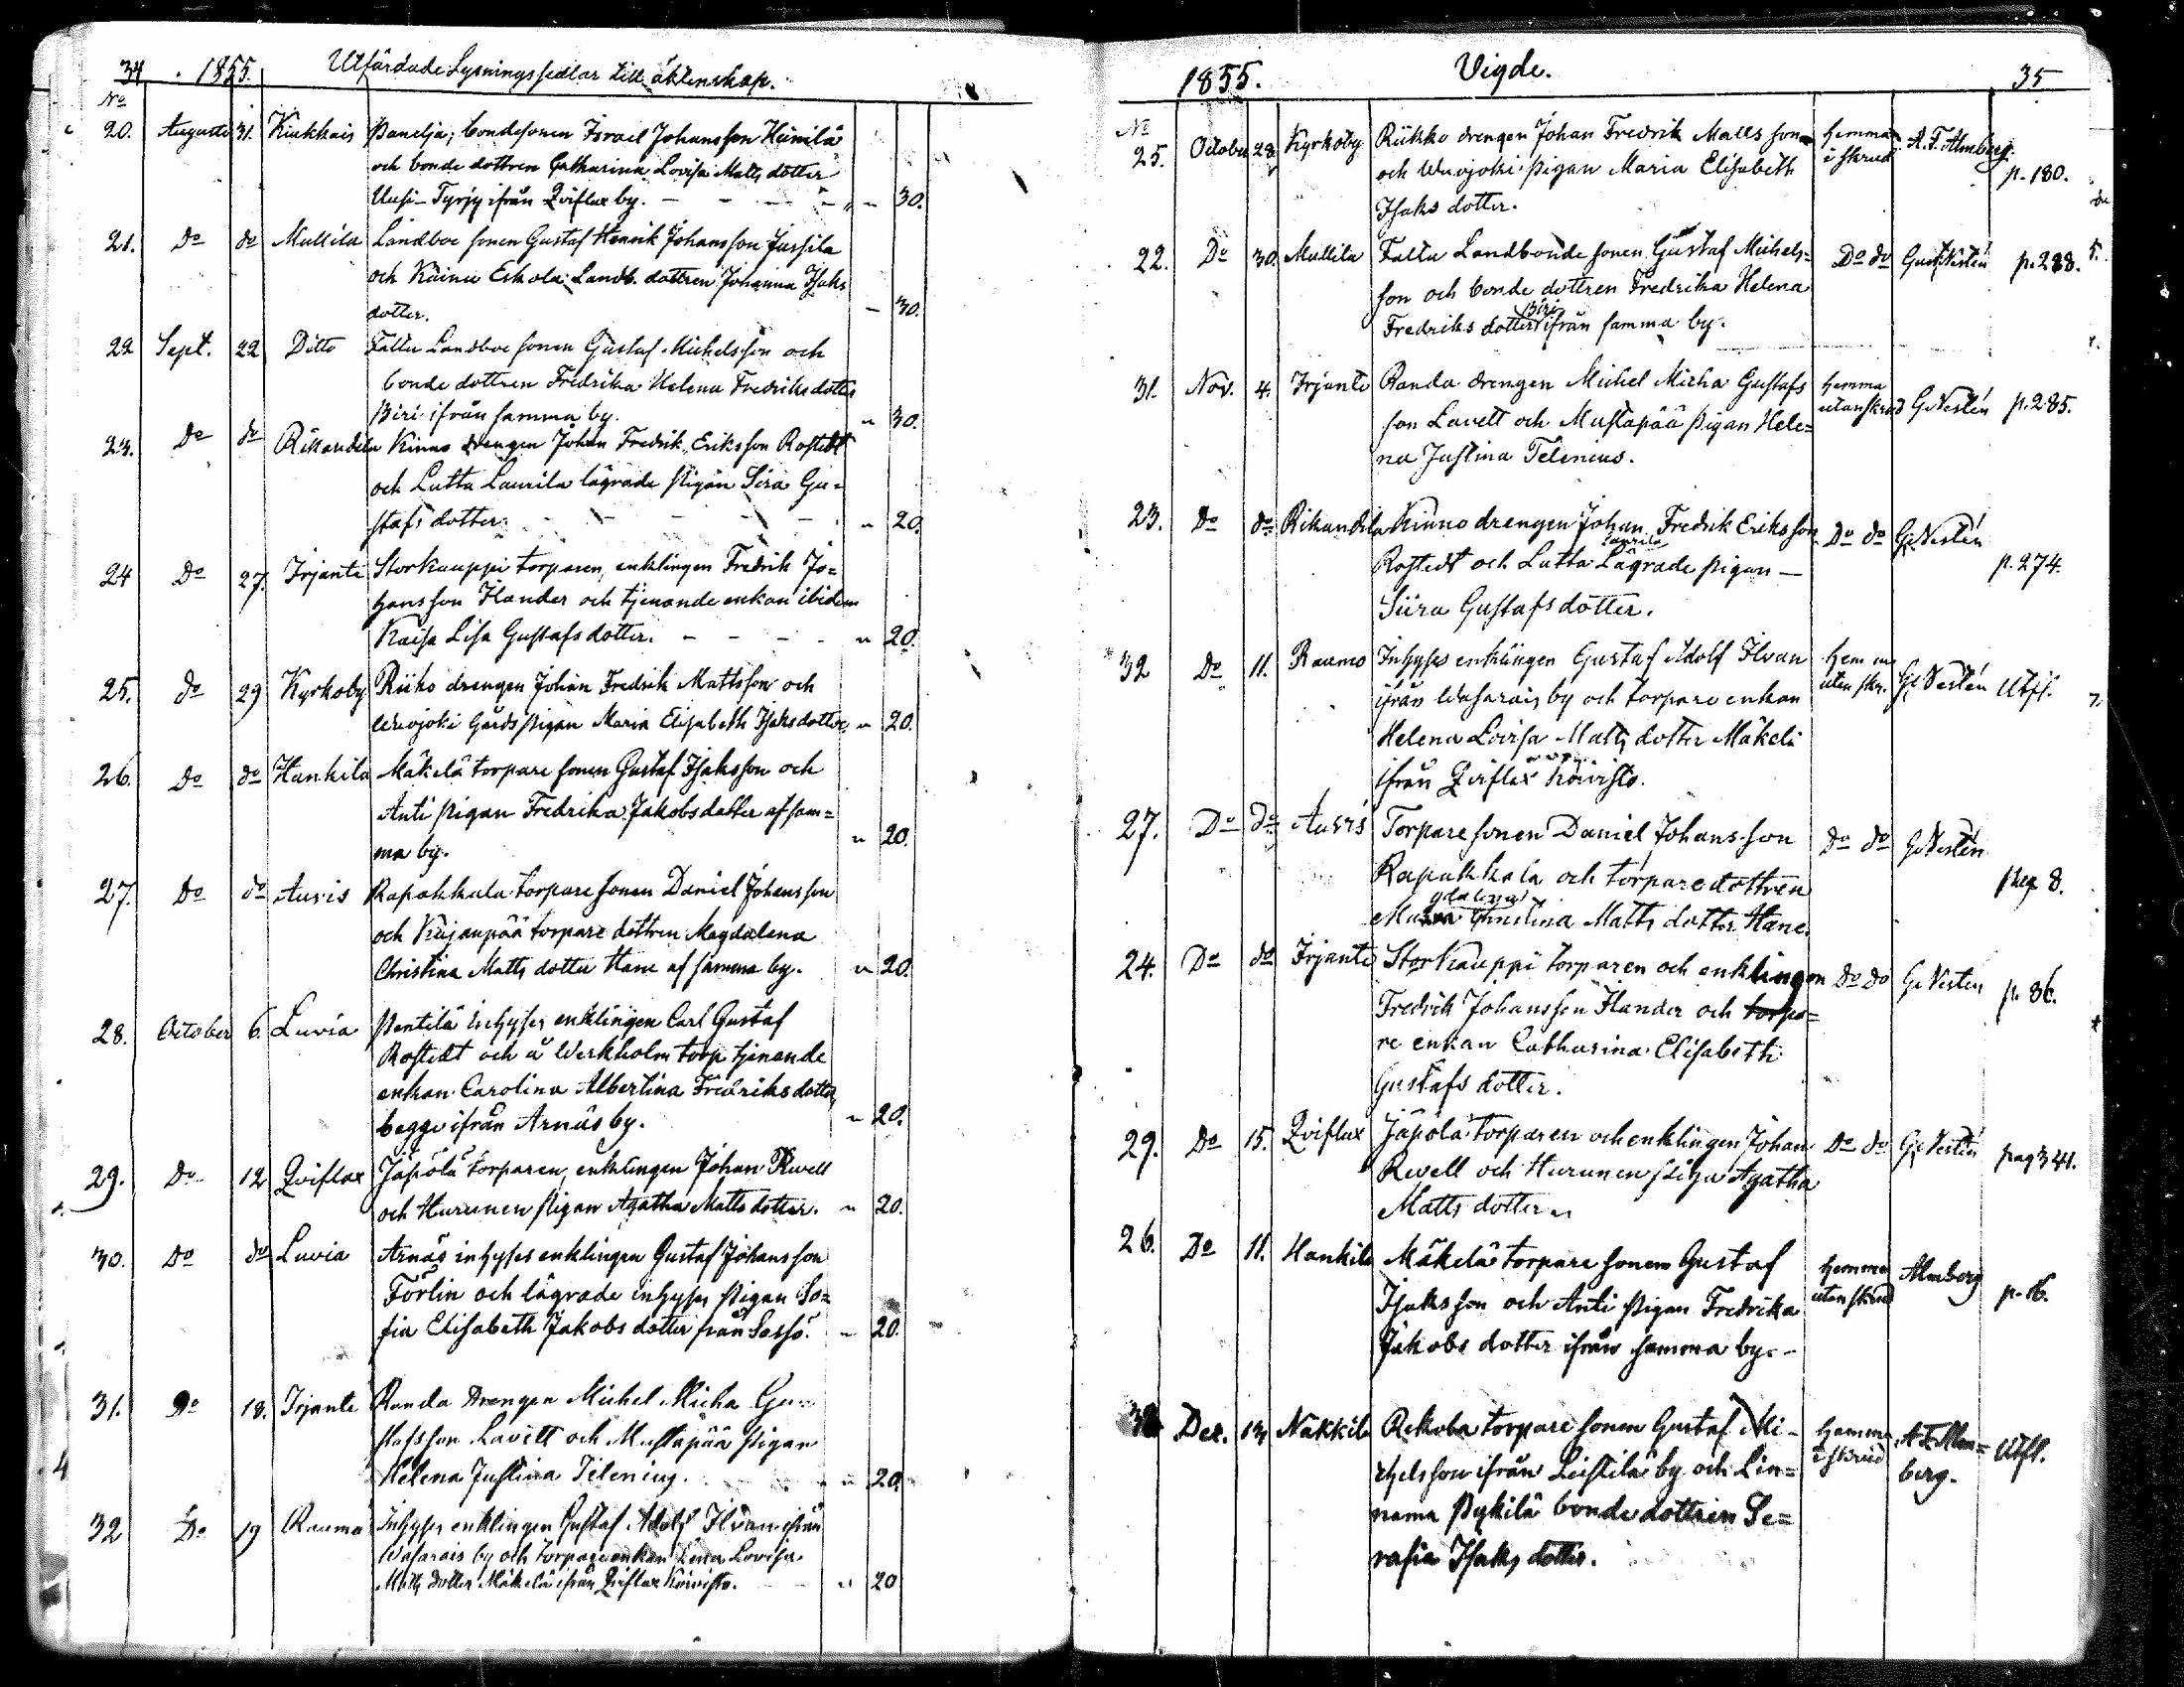 34 . 1855. Utfärdade Lysningssedlar till äktenskap.
No
20. Augusti 31. Kiukkais Panelja, bondesonen Israel Johansson Heinilä
och bonde dottren Catharina Lovisa Matts dotter
Uusi-Tyrjy ifrån Qviflax by. - - - - " " 30.
21. Do do Mullila Landboe sonen Gustaf Henrik Johansson Jussila
och Käinu Eskola Landb. dottren Johanna Isaks
dotter. - 30.
22 Sept. 22 Ditto Fattu Landboe sonen Gustaf Michelsson och
bonde dottren Fredrika Helena Fredriksdotter
Piri ifrån samma by. " 30.
23. Do do Rikandila Kinno drengen Johan Fredrik Eriksson Rostedt
och Lutta Laurila lägrade pigan Sira Gu-
stafs dotter. - - - - " 20.
24 Do 27. Irjante Storkauppi torparen, enklingen Fredrik Jo=
hansson Ilander och tjenande enkan ibidem
Kaisa Lisa Gustafs dotter. - - - - " 20.
25. do 29 Kyrkoby Riiko drengen Johan Fredrik Mattsson och
Wuojoki Gårds pigan Maria Elisabeth Isaksdotter " 20.
26. Do do Hankila Mäkelä torpare sonen Gustaf Isaksson och
Anti pigan Fredrika Jakobsdotter af sam=
ma by. " 20.
27. Do do Auvis Rapakkala torpare sonen Daniel Johansson
och Kujanpää torpare dottren Magdalena
Christina Matts dotter Hane af samma by. " 20.
28. October 6. Luvia Pentilä inhyses enklingen Carl Gustaf
Rostedt och å Werkholm torp tjenande
enkan Carolina Albertina Fredriksdotter,
begge ifrån Arnäs by. " 20.
29. Do 12 Qviflax Jäpölä torparen, enklingen Johan Rwell
och Hurunen pigan Agatha Matts dotter. " 20.
30. Do do Luvia Arnäs inhyses enklingen Gustaf Johansson
Förlin och lägrade inhyses pigan So=
fia Elisabeth Jakobs dotter från Sassö. " 20.
31. Do 18. Irjante Randa drengen Michel Micha Gu=
stafsson Lavett och Mustapää pigan
Helena Justina Telenius. " 20.
32 Do 19 Rauma Inhyses enklingen Gustaf Adolf Ilvan ifrån
Wasarais by och torpare enkan Lena Lovisa
Matts dotter Mäkelä ifrån Qviflax Koivisto. " 20
1855. Vigde. 35
No
25. October 28 Kyrkoby Riikko drengen Johan Fredrik Matts son
och Wuojoki pigan Maria Elisabeth
Isaks dotter. hemma i skrud A. F. Almberg. p. 180.
22. Do 30. Mullila Fattu Landbonde sonen Gustaf Michels=
son och bonde dottren Fredrika Helena
Fredriks dotter Piri ifrån samma by. Do do Gust. Nestén p. 288.
31. Nov. 4. Irjante Randa drengen Michel Micha Gustafs
son Lavett och Mustapää pigan Hele=
na Justina Telenius. hemma utan skrud G. Nestén p. 285.
23. Do do Rikandila Kinno drengen Johan Fredrik Eriksson
Rostedt och Lutta Laurila Lägrade pigan -
Siira Gustafs dotter. Do do G. Nestén p. 274.
32 Do 11. Raumo Inhyses enklingen Gustaf Adolf Ilvan
ifrån Wasarais by och torpare enkan
Helena Lovisa Matts dotter Mäkelä
ifrån Qviflax Koivisto. hemma utan skr. G. Nestén Utfl.
27. Do do Auvis Torpare sonen Daniel Johans son
Rapakkala och torparedottren
Magdalena Christina Matts dotter Hane. do do G. Nestén pag 8.
24. Do do Irjante Storkauppi torparen och enklingen
Fredrik Johansson Ilander och torpa=
re enkan Catharina Elisabeth
Gustafs dotter. do do G. Nestén p. 86.
29. Do 15. Qviflax Jäpölä torparen och enklingen Johan
Rwell och Hurunen piga Agatha
Matts dotter. Do do G. Nestén pag 341.
26. Do 11. Hankila Mäkelä torpare sonen Gustaf
Isaksson och Anti pigan Fredrika
Jakobs dotter ifrån samma by. - hemma utan skrud Almberg p. 16.
Dec. 13 Nakkila Rekola torpare sonen Gustaf Mi-
chelsson ifrån Leistilä by och Lin=
nama Pykilä bonde dottren Se=
rafia Isaks dotter. hemma i skrud A. F. Alm=
berg. Utfl.